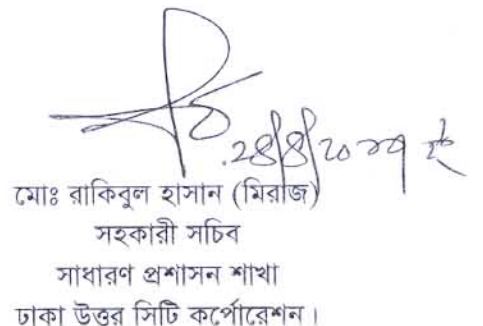 ২৪/৪/২০১৭ ইং
মোঃ রাকিবুল হাসান (মিরাজ)
সহকারী সচিব
সাধারণ প্রশাসন শাখা
ঢাকা উত্তর সিটি কর্পোরেশন।